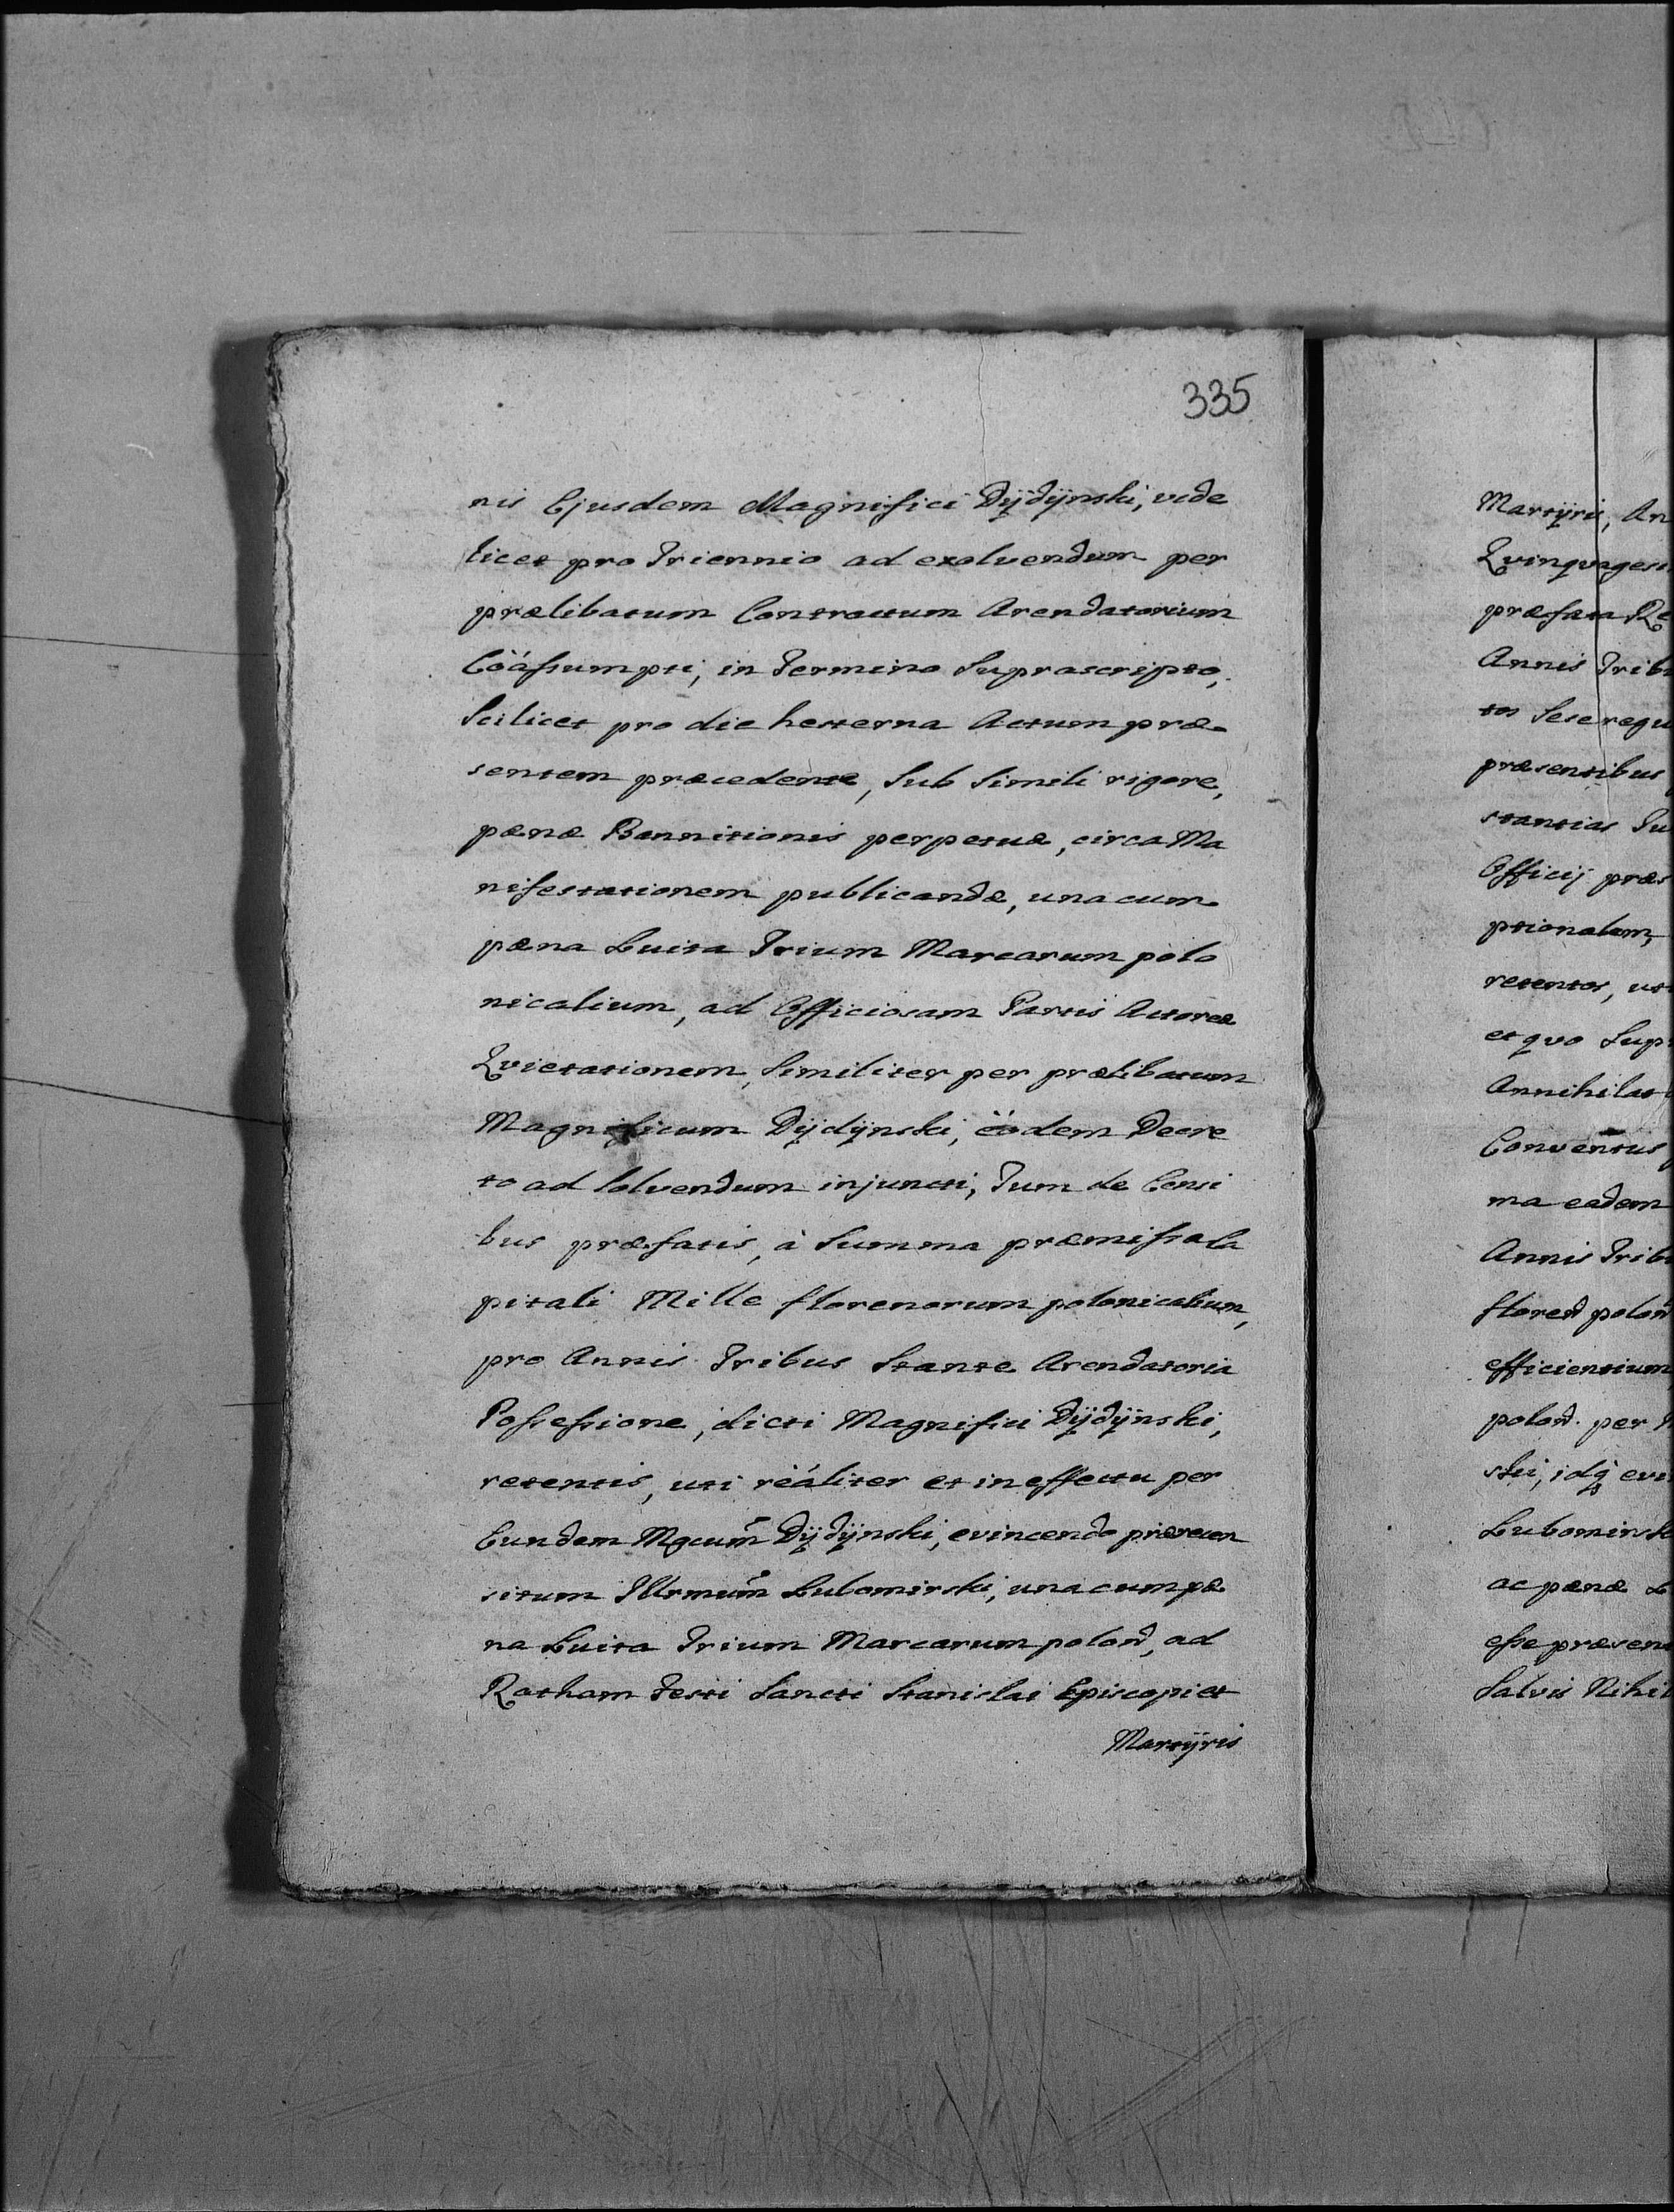 335
nis Ejusdem Magnifici Dÿdÿnski, vide
licet pro Triennio ad exolvendum per
prælibatum Contractum Arendatorium
Cöássumpti, in Termino Suprascripto,
Scilicet pro die hesterna Actum præ
sentem præcedente, Sub Simili rigore,
pænæ Bannitionis perpetuæ, circa Ma
nifestationem publicandæ, una cum
pæna Luita Trium Marcarum polo
nicalium, ad Officiosam Partis Actoreæ
Qvietationem, Similiter per prælibatum
Magnificum Dÿdÿnski, ëodem Decre
to ad solvendum injuncti, Tum de Censi
bus præfatis, à Summa præmissa Ca
pitali Mille florenorum polonicalium,
pro Annis Tribus Stante Arendatoria
Possessione, dicti Magnifici Dÿdÿnski,
retentis, uti rëáliter et in effectu per
Eundem Mgcum Dÿdÿnski, evincendo præcen
situm Illrmum Lubomirski, una cum pæ
na Luita Trium Marcarum polon, ad
Ratham Festi Sancti Stanislai Episcopi et
Martÿris
Martÿris, An
Qvinqvagesi
præfata Re
Annis Trib
tos Sese requ
præsentibus
stantias Su
Officij præs
ptionalem,
retentos, ut
et qvo Sup
Annihilat
Conventus
ma eadem
Annis Trib
floren polon
efficientium
polon. per
ski, idq evi
Lubomirsk
ac pænæ L
esse præsen
Salvis Nihil